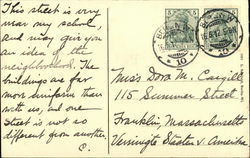 This street is very
near my school
and may give you
an idea of the
neighborhood. The
buildings are far
more uniform than
with us, and one
street is not so
different from another
C.
Miss Dora M. Cargill
115 Summer Street
Franklin, Massachusetts
Vereinigte Staaten v. Amerika